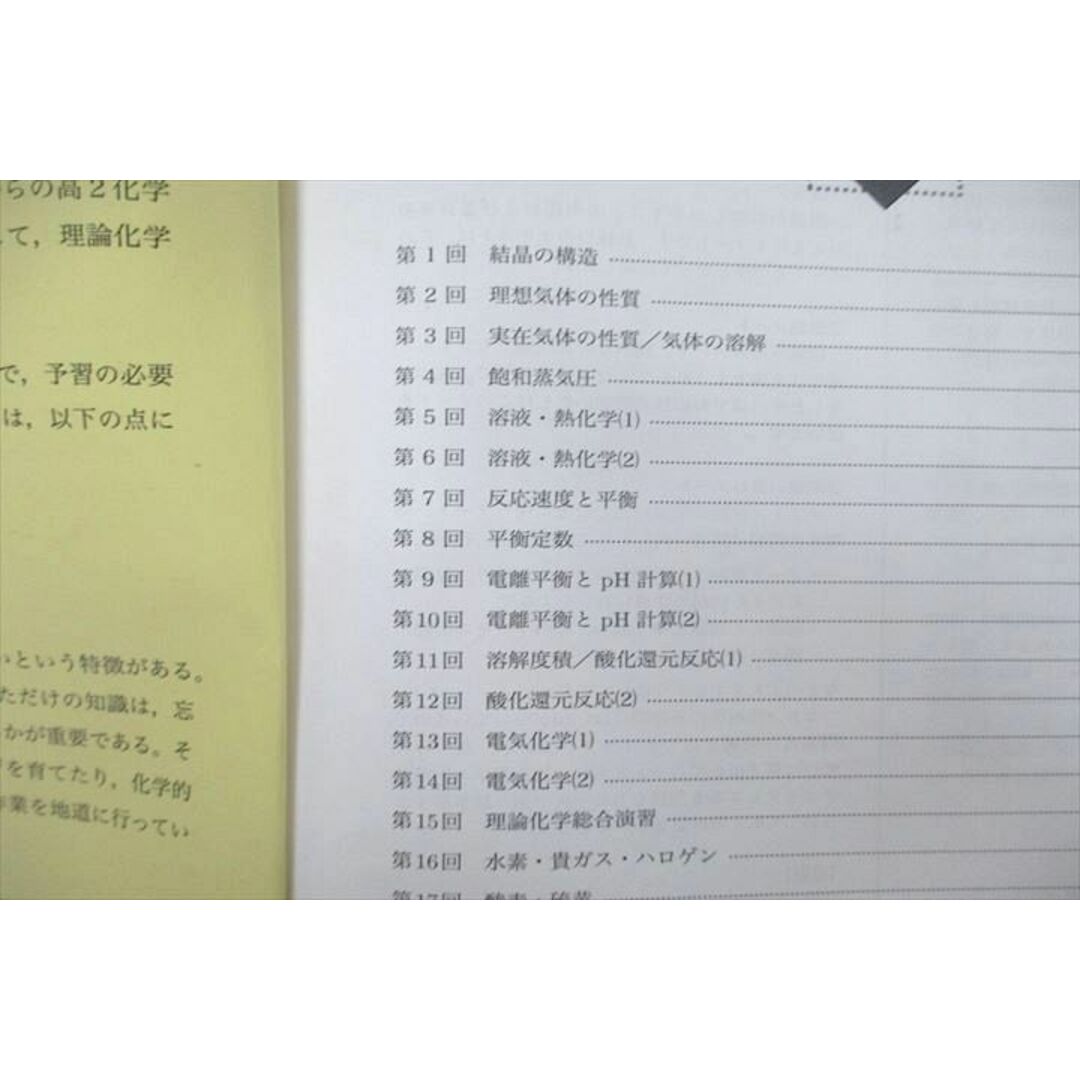 らの高2化学
て，理論化学
で，予習の必要
は，以下の点に
という特徴がある。
ただけの知識は，忘
かが重要である。そ
を育てたり，化学的
作業を地道に行ってい
第1回 結晶の構造
第2回 理想気体の性質
第3回 実在気体の性質／気体の溶解
第4回 飽和蒸気圧
第5回 溶液・熱化学(1)
第6回 溶液・熱化学(2)
第7回 反応速度と平衡
第8回 平衡定数
第9回 電離平衡と pH 計算(1)
第10回 電離平衡と pH 計算(2)
第11回 溶解度積／酸化還元反応(1)
第12回 酸化還元反応(2)
第13回 電気化学(1)
第14回 電気化学(2)
第15回 理論化学総合演習
第16回 水素・貴ガス・ハロゲン
第17回 酸素・硫黄